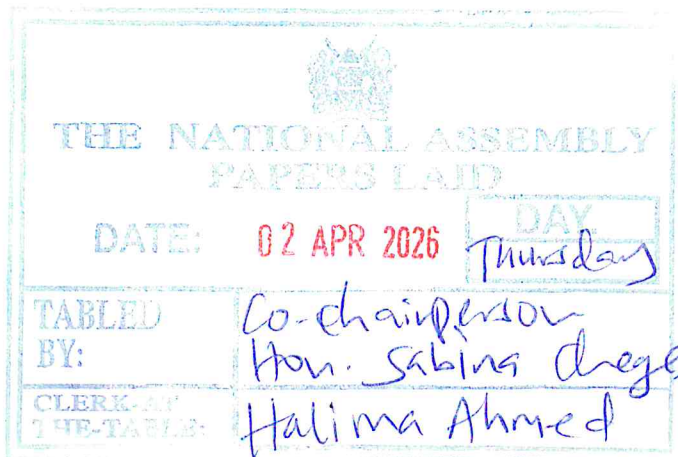 THE NATIONAL ASSEMBLY
PAPERS LAID
DATE: 02 APR 2026 DAY
Thursday
TABLED BY: Co-chairperson
Hon. Sabina Chege
CLERK-AT THE-TABLE: Halima Ahmed